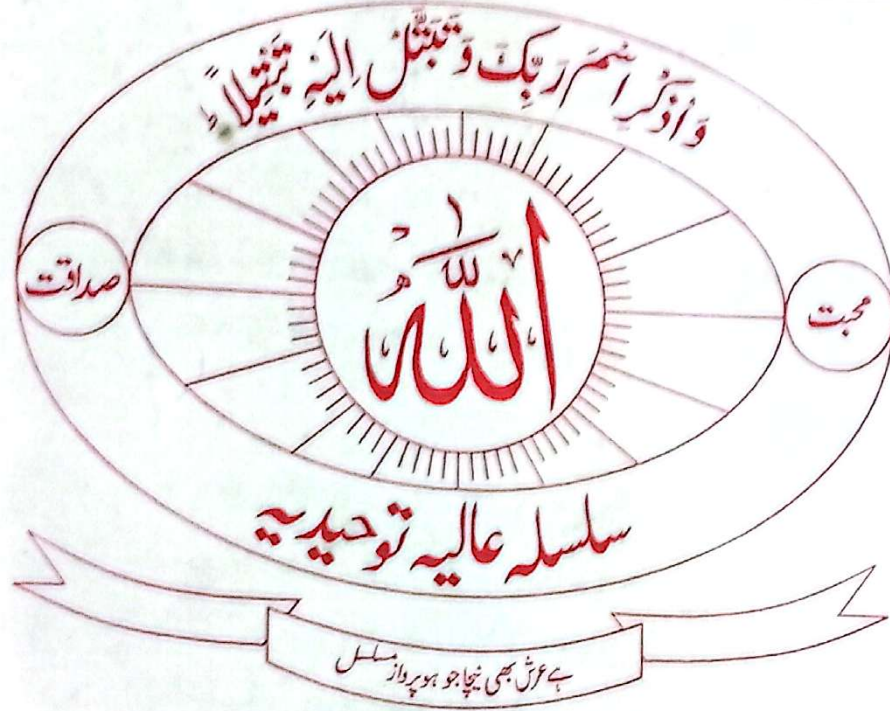 وَاذْكُرِ اسْمَ رَبِّكَ وَتَبَتَّلْ إِلَيْهِ تَبْتِيلًا
محبت
الله
صداقت
سلسلہ عالیہ توحیدیہ
ہے عرش بھی نیچا جو ہو پرواز مسلسل